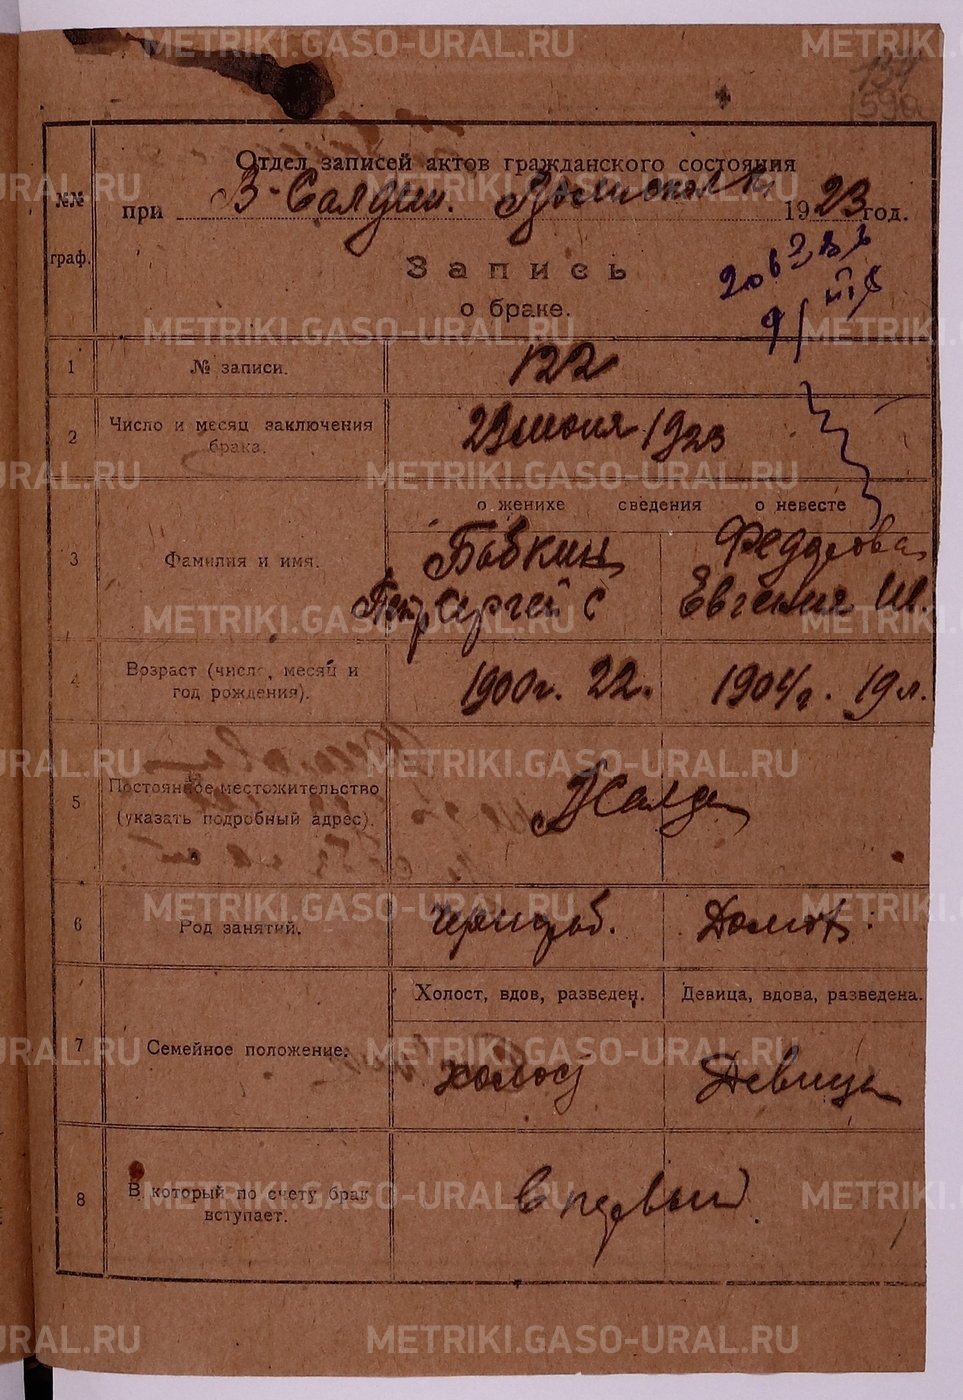 METRIKI.GASO-URAL.RU
159а
Отдел записей актов гражданского состояния
при В-Салдин. 1923 год.
№№ граф.
Запись
о браке.
1 № записи. 122
2 Число и месяц заключения брака. 29 июня 1923
о женихе сведения о невесте
3 Фамилия и имя. Бабкин Федорова
Петр Сергей с Евгения
4 Возраст (число, месяц и год рождения). 1900 г. 22. 1904 г. 19 л.
5 Постоянное местожительство (указать подробный адрес). Салда
6 Род занятий. Чернораб. Домох.
Холост, вдов, разведен. Девица, вдова, разведена.
7 Семейное положение. холост Девица
8 В который по счету брак вступает. в первый